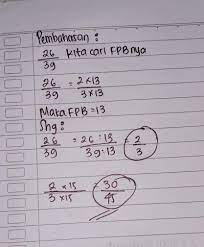 Pembahasan :
26/39 kita cari FPB nya
26/39 = 2×13/3×13
Maka FPB = 13
Sng :
26/39 = 26:13/39:13 = 2/3
2×15/3×15 = 30/45